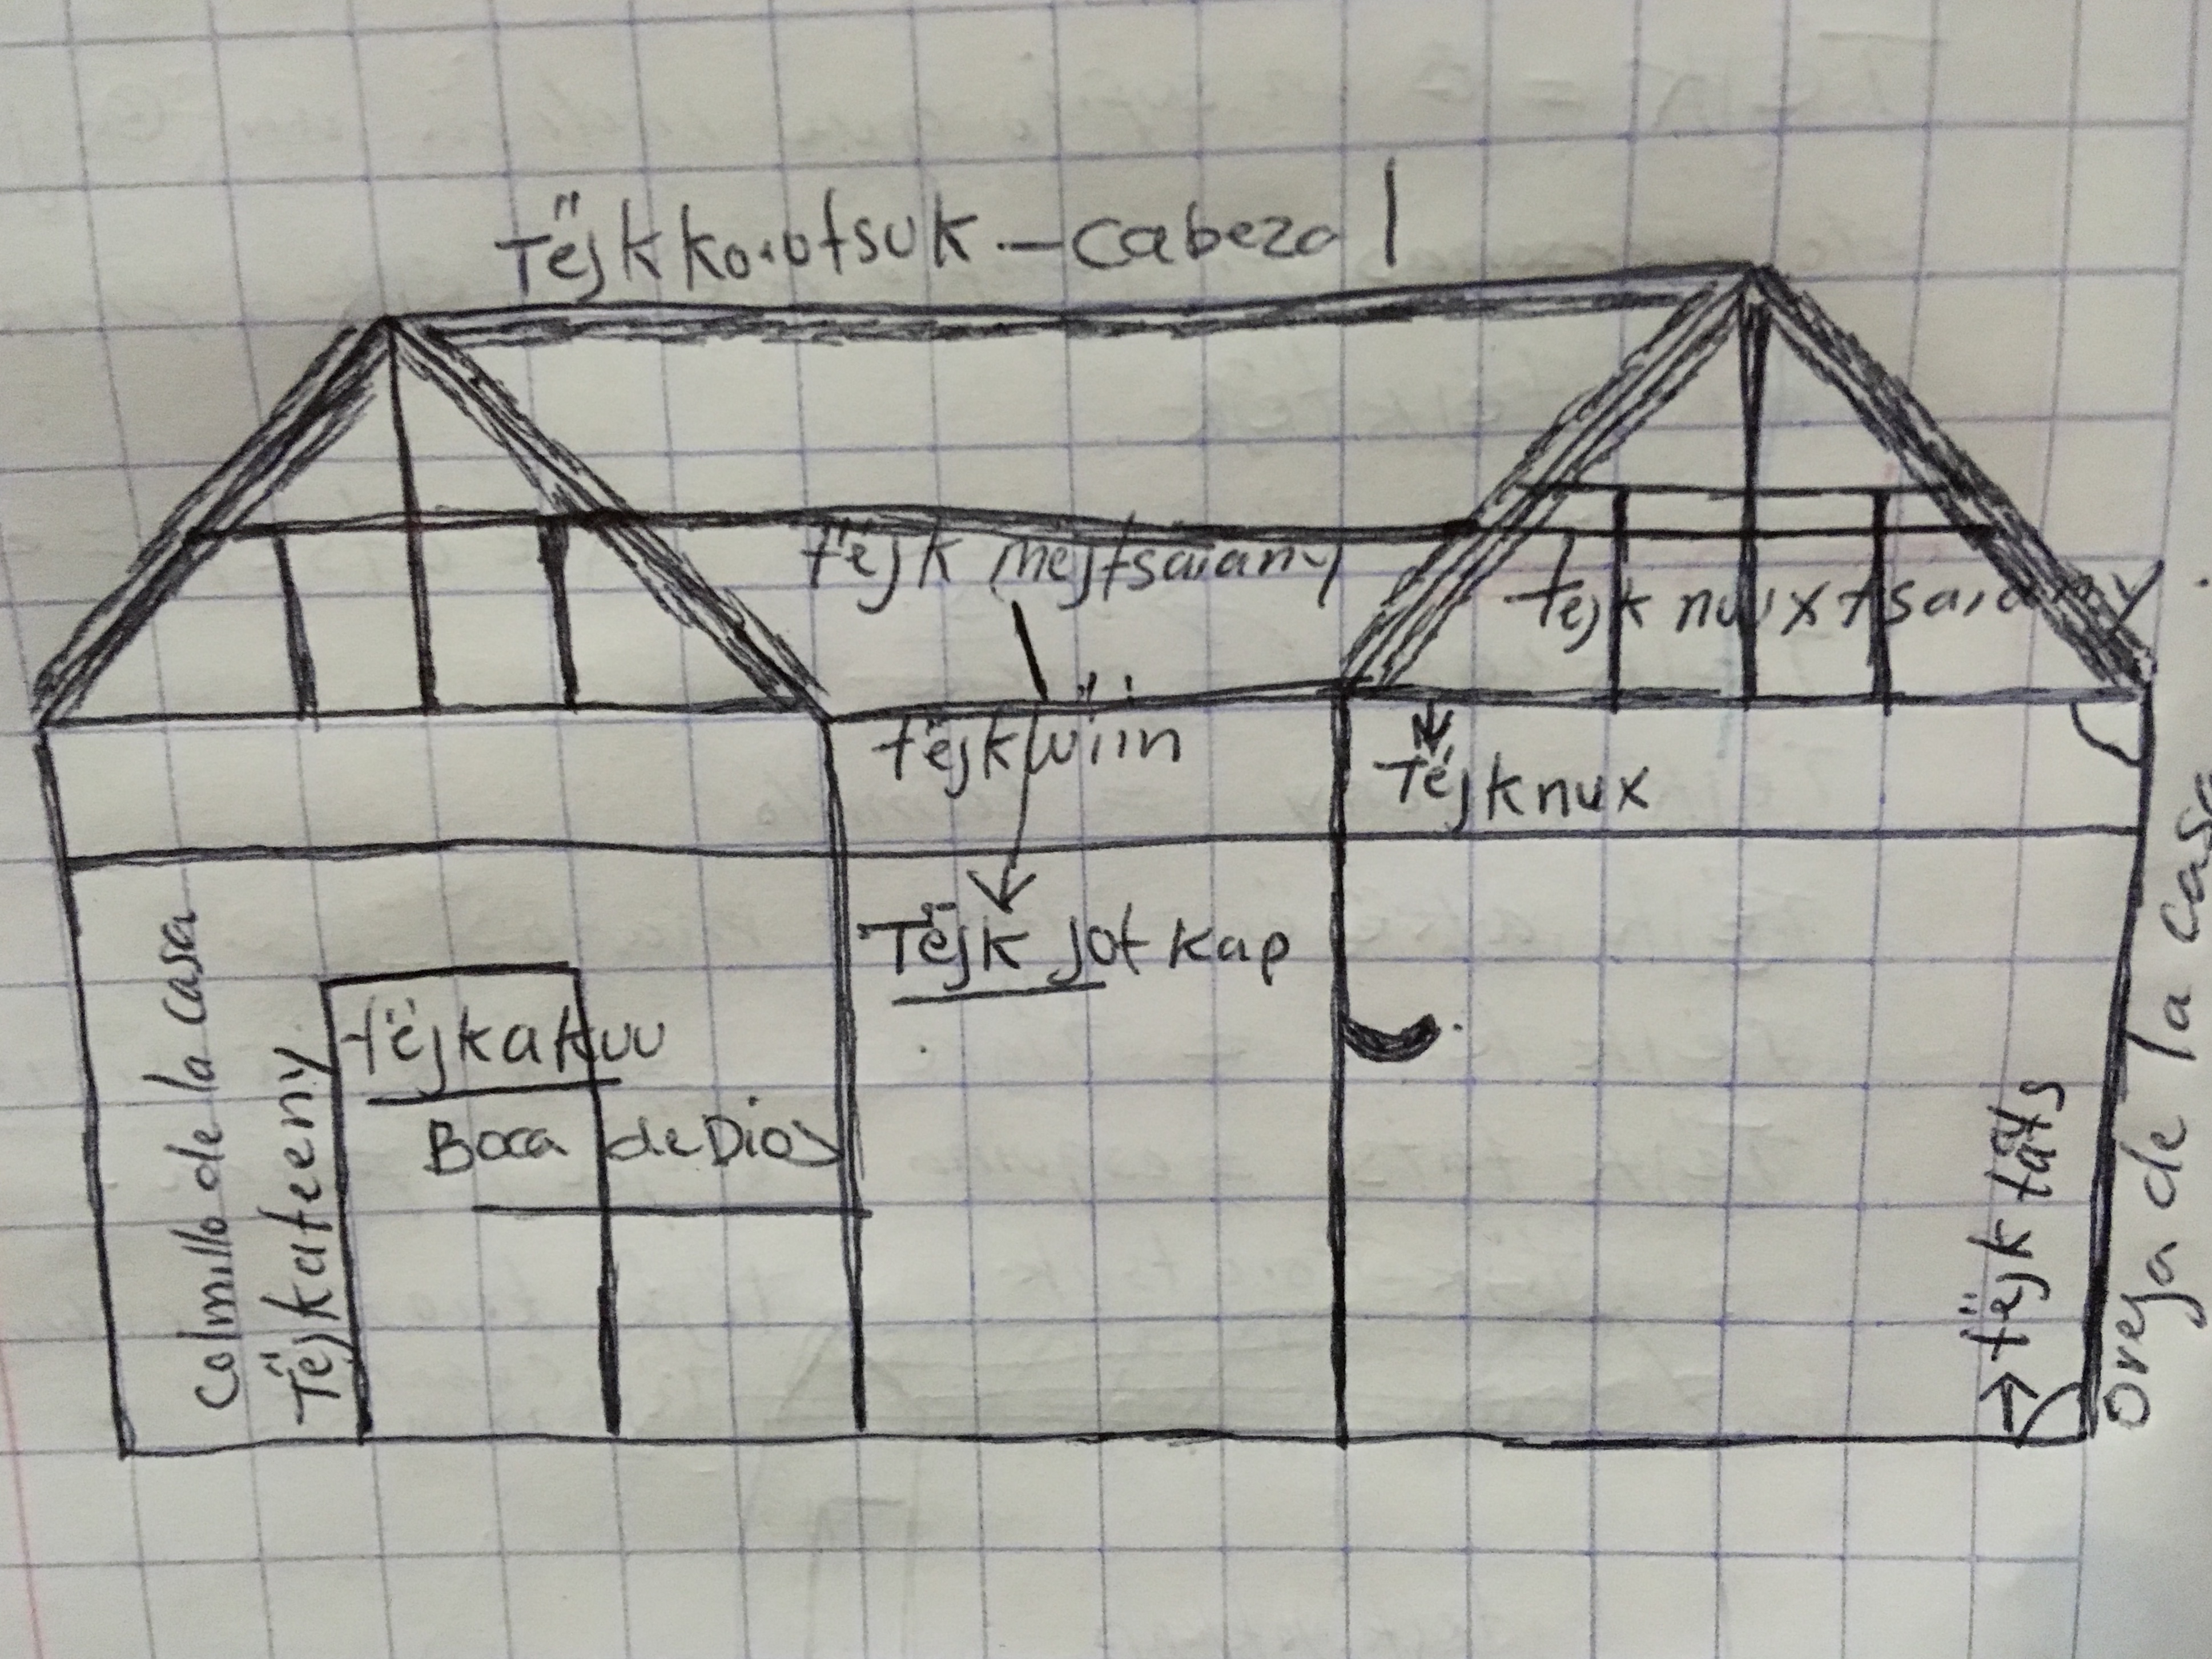 Tëjkko.otsuk - cabezal
tëjk mejtsa'any
tëjk nuuxtsa'any
tëjkwiin
Tëjknux
Tëjk jot kap
Colmillo de la casa
Tëjkateeny
tëjkakuu
Boca de Dios
tëjk täts
oreja de la casa